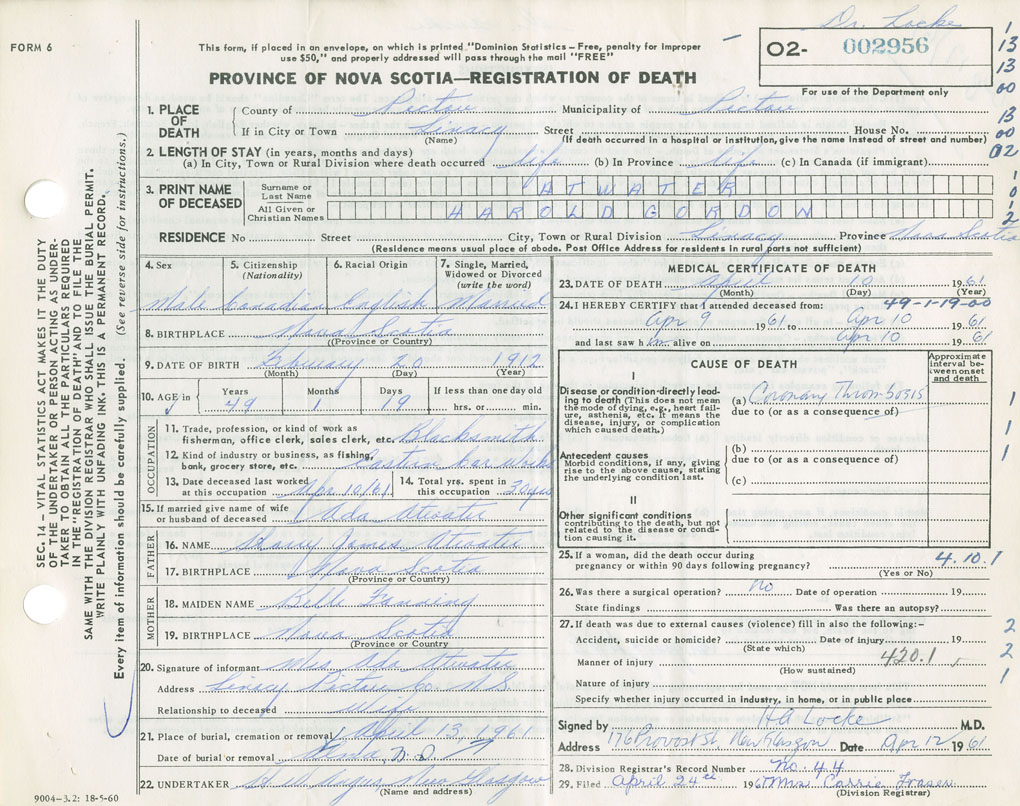 Dr. Locke
FORM 6
This form, if placed in an envelope, on which is printed "Dominion Statistics – Free, penalty for improper
use $50," and properly addressed will pass through the mail "FREE"
O2- 002956
For use of the Department only
PROVINCE OF NOVA SCOTIA—REGISTRATION OF DEATH
1
13
13
00
13
00
02
1. PLACE OF DEATH
County of Pictou Municipality of Pictou
If in City or Town Linacy Street House No.
(Name) (If death occurred in a hospital or institution, give the name instead of street and number)
2. LENGTH OF STAY (in years, months and days)
(a) In City, Town or Rural Division where death occurred life (b) In Province life (c) In Canada (if immigrant)
3. PRINT NAME OF DECEASED
Surname or Last Name ATWATER
All Given or Christian Names HAROLD GORDON
RESIDENCE No Street City, Town or Rural Division Linacy Province Nova Scotia
(Residence means usual place of abode. Post Office Address for residents in rural parts not sufficient)
4. Sex Male
5. Citizenship (Nationality) Canadian
6. Racial Origin English
7. Single, Married, Widowed or Divorced (write the word) Married
8. BIRTHPLACE Nova Scotia
(Province or Country)
9. DATE OF BIRTH February 20 1912
(Month) (Day) (Year)
10. AGE in Years 49 Months 1 Days 19 If less than one day old hrs. or min.
OCCUPATION
11. Trade, profession, or kind of work as fisherman, office clerk, sales clerk, etc. Blacksmith
12. Kind of industry or business, as fishing, bank, grocery store, etc. Eastern Car Works
13. Date deceased last worked at this occupation Apr 10/61
14. Total yrs. spent in this occupation 30 yrs
15. If married give name of wife or husband of deceased Ada Atwater
FATHER
16. NAME Harry James Atwater
17. BIRTHPLACE Nova Scotia
(Province or Country)
MOTHER
18. MAIDEN NAME Belle Fanning
19. BIRTHPLACE Nova Scotia
(Province or Country)
20. Signature of informant Mrs Ada Atwater
Address Linacy Pictou Co. N.S.
Relationship to deceased Wife
21. Place of burial, cremation or removal April 13, 1961
Date of burial or removal
22. UNDERTAKER Angus New Glasgow
(Name and address)
9004–3.2: 18-5-60
MEDICAL CERTIFICATE OF DEATH
23. DATE OF DEATH April 10 1961
(Month) (Day) (Year)
24. I HEREBY CERTIFY that I attended deceased from: 49-1-19-00
Apr 9 1961 to Apr 10 1961
and last saw him alive on Apr 10 1961
CAUSE OF DEATH
Approximate interval between onset and death
I
Disease or condition directly leading to death (This does not mean the mode of dying, e.g., heart failure, asthenia, etc. It means the disease, injury, or complication which caused death.)
(a) Coronary Thrombosis
due to (or as a consequence of)
Antecedent causes
Morbid conditions, if any, giving rise to the above cause, stating the underlying condition last.
(b)
due to (or as a consequence of)
(c)
II
Other significant conditions
contributing to the death, but not related to the disease or condition causing it.
1
1
1
25. If a woman, did the death occur during pregnancy or within 90 days following pregnancy? 4.10.1
(Yes or No)
26. Was there a surgical operation? no Date of operation 19
State findings Was there an autopsy?
27. If death was due to external causes (violence) fill in also the following:–
Accident, suicide or homicide? Date of injury 19
(State which)
Manner of injury 420.1
(How sustained)
Nature of injury
Specify whether injury occurred in industry, in home, or in public place
2
2
1
Signed by HA Locke M.D.
Address 176 Provost St. New Glasgow Date Apr 12 1961
28. Division Registrar's Record Number No. 44
29. Filed April 24th 1961 Mrs Carrie Fraser
(Division Registrar)
SEC. 14 – VITAL STATISTICS ACT MAKES IT THE DUTY
OF THE UNDERTAKER OR PERSON ACTING AS UNDER-
TAKER TO OBTAIN ALL THE PARTICULARS REQUIRED
IN THE "REGISTRATION OF DEATH" AND TO FILE THE
SAME WITH THE DIVISION REGISTRAR WHO SHALL ISSUE THE BURIAL PERMIT.
WRITE PLAINLY WITH UNFADING INK. THIS IS A PERMANENT RECORD.
Every item of information should be carefully supplied. (See reverse side for instructions.)